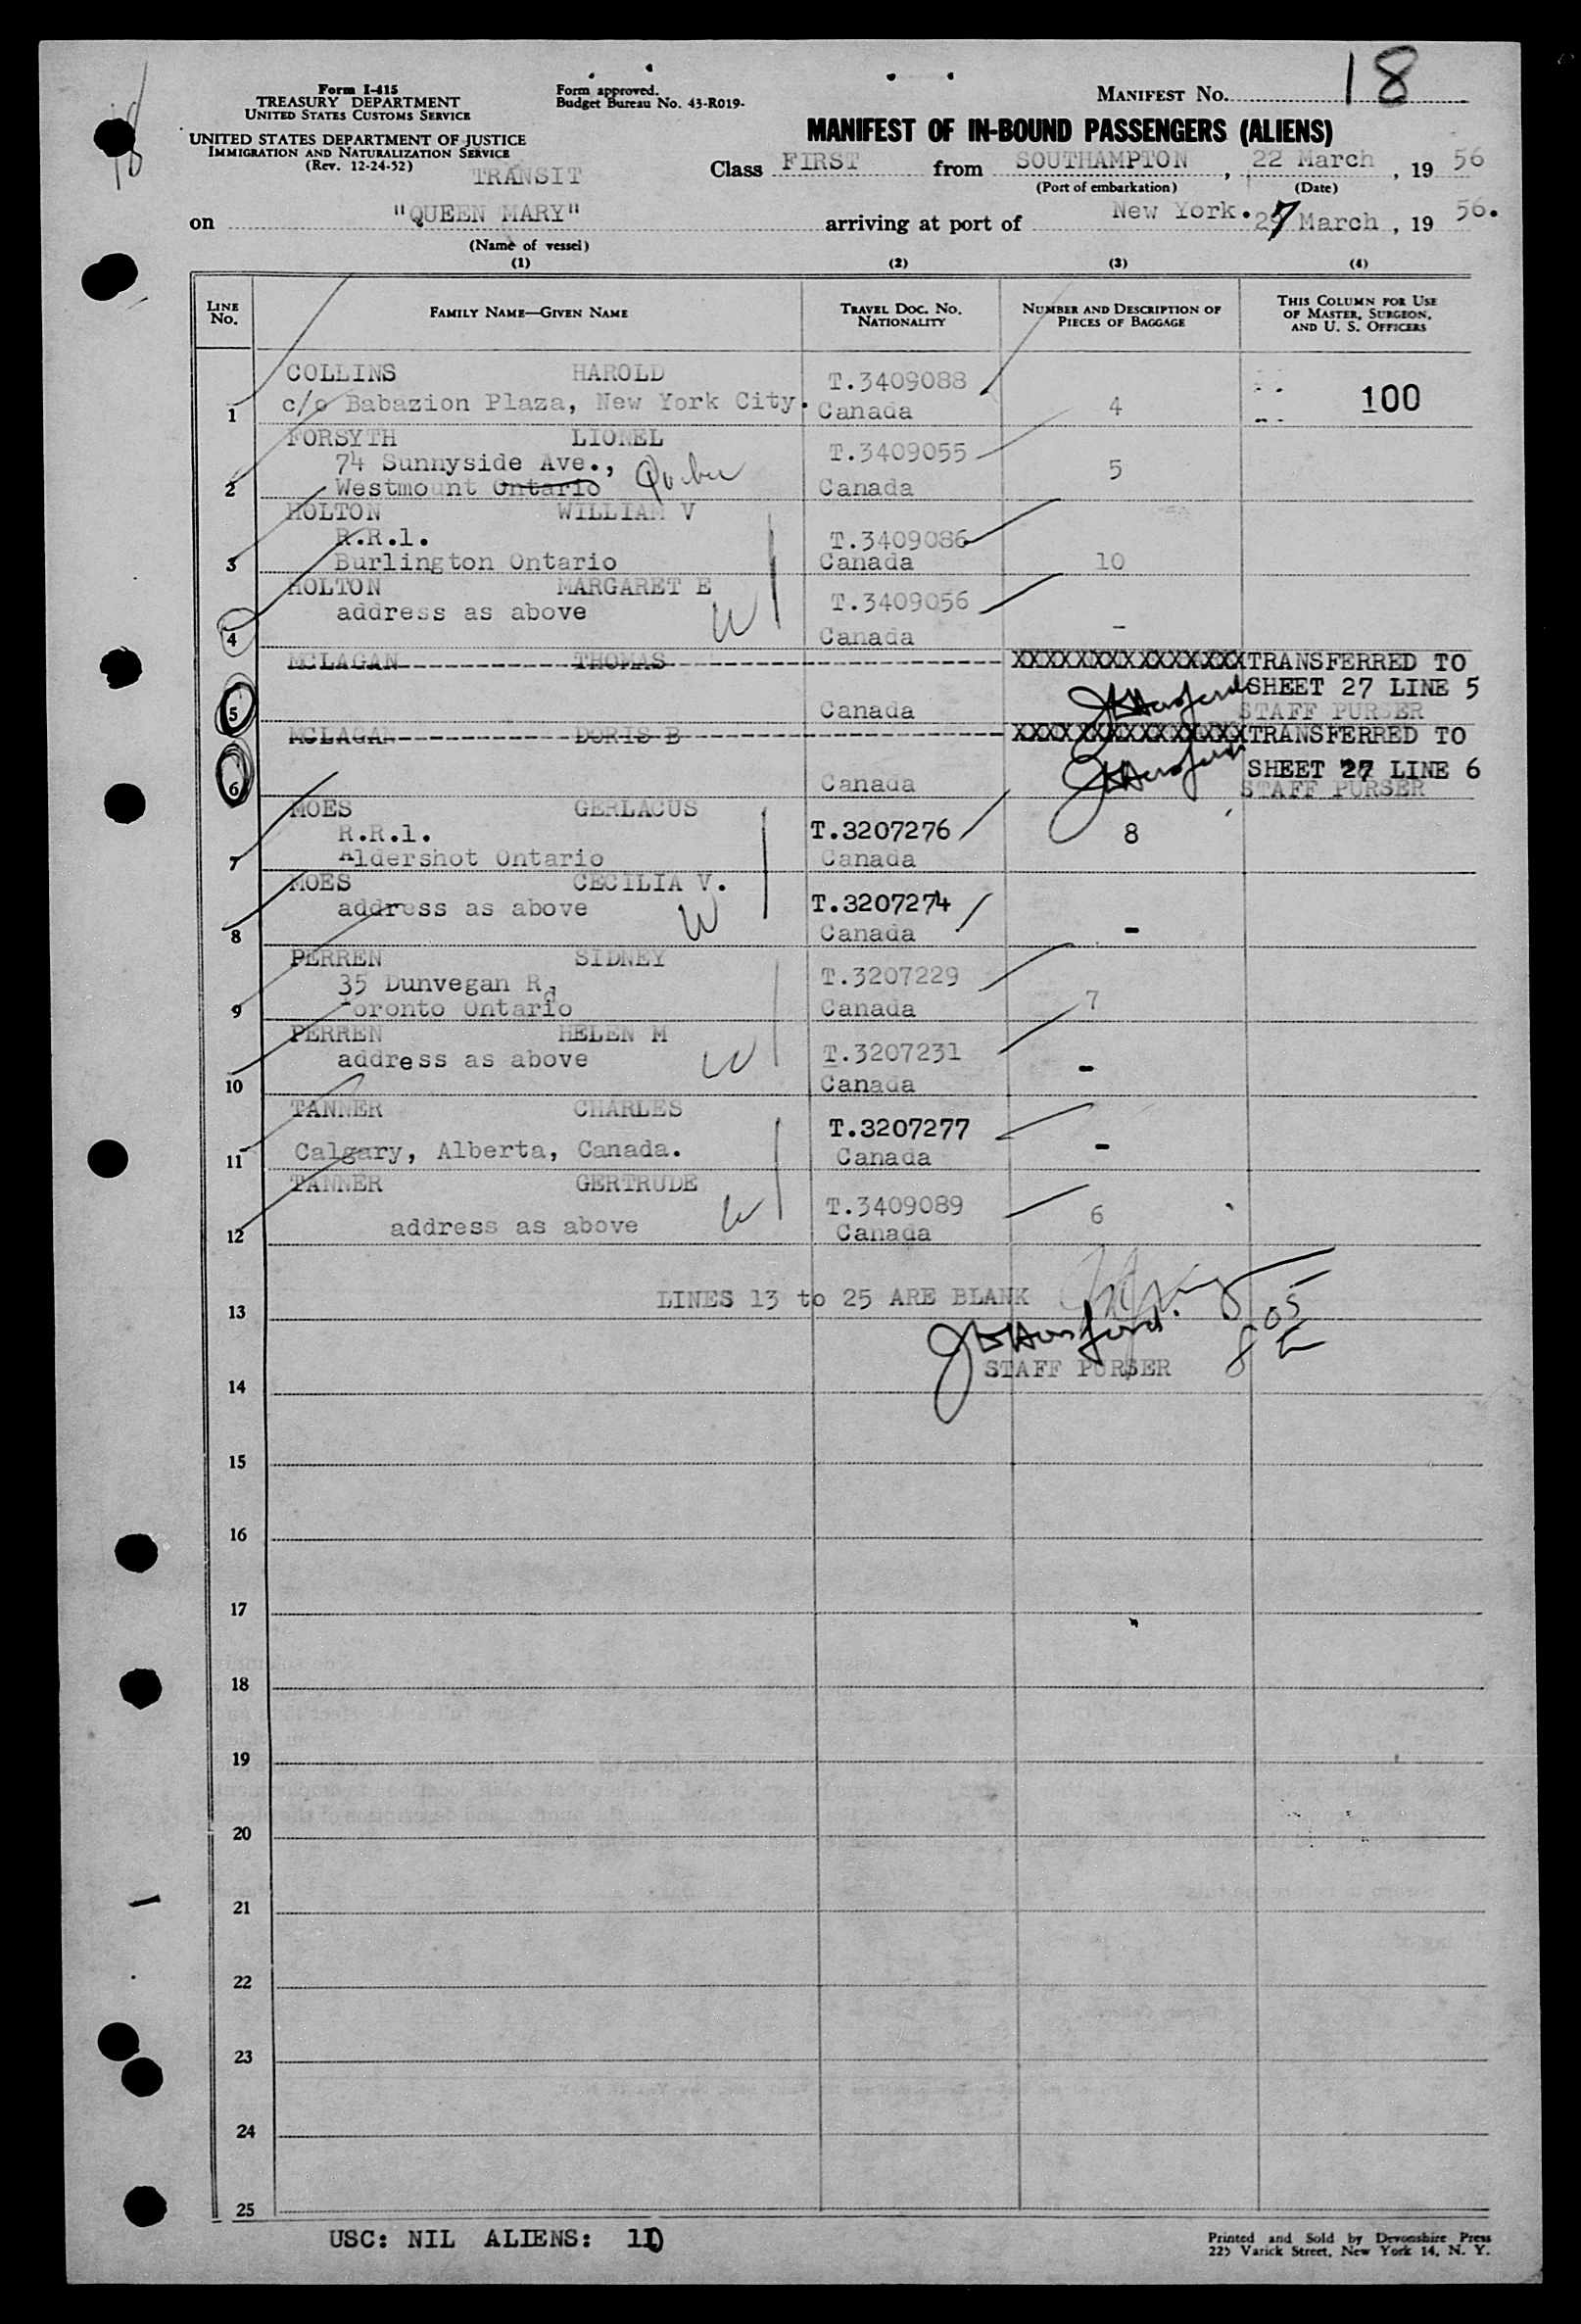 18
Form I-415
TREASURY DEPARTMENT
UNITED STATES CUSTOMS SERVICE
UNITED STATES DEPARTMENT OF JUSTICE
IMMIGRATION AND NATURALIZATION SERVICE
(Rev. 12-24-52)
TRANSIT
Form approved.
Budget Bureau No. 43-R019-
MANIFEST NO. 18
MANIFEST OF IN-BOUND PASSENGERS (ALIENS)
Class FIRST from SOUTHAMPTON, 22 March, 1956
(Port of embarkation) (Date)
on "QUEEN MARY" arriving at port of New York. 27 March, 1956.
(Name of vessel)
(1) (2) (3) (4)
LINE NO.
FAMILY NAME—GIVEN NAME
TRAVEL DOC. NO. NATIONALITY
NUMBER AND DESCRIPTION OF PIECES OF BAGGAGE
THIS COLUMN FOR USE OF MASTER, SURGEON, AND U. S. OFFICERS
COLLINS HAROLD T.3409088
1 c/o Babazion Plaza, New York City. Canada 4 100
FORSYTH LIONEL T.3409055
74 Sunnyside Ave., 5
2 Westmount Ontario Quebec Canada
HOLTON WILLIAM V
R.R.1. T.3409086
3 Burlington Ontario Canada 10
HOLTON MARGARET E
address as above W T.3409056
4 Canada -
MCLAGAN THOMAS XXXXXXXXXXXXXXX TRANSFERRED TO
SHEET 27 LINE 5
5 Canada STAFF PURSER
MCLAGAN DORIS B XXXXXXXXXXXXXXX TRANSFERRED TO
SHEET 27 LINE 6
6 Canada STAFF PURSER
MOES GERLACUS
R.R.1. T.3207276 8
7 Aldershot Ontario Canada
MOES CECILIA V.
address as above W T.3207274
8 Canada -
PERREN SIDNEY
35 Dunvegan Rd T.3207229
9 Toronto Ontario Canada 7
PERREN HELEN M
address as above W T.3207231 -
10 Canada
TANNER CHARLES T.3207277
11 Calgary, Alberta, Canada. Canada -
TANNER GERTRUDE T.3409089
address as above W 6
12 Canada
LINES 13 to 25 ARE BLANK
13
STAFF PURSER
14
15
16
17
18
19
20
21
22
23
24
25
USC: NIL ALIENS: 10
Printed and Sold by Devonshire Press
225 Varick Street, New York 14, N. Y.